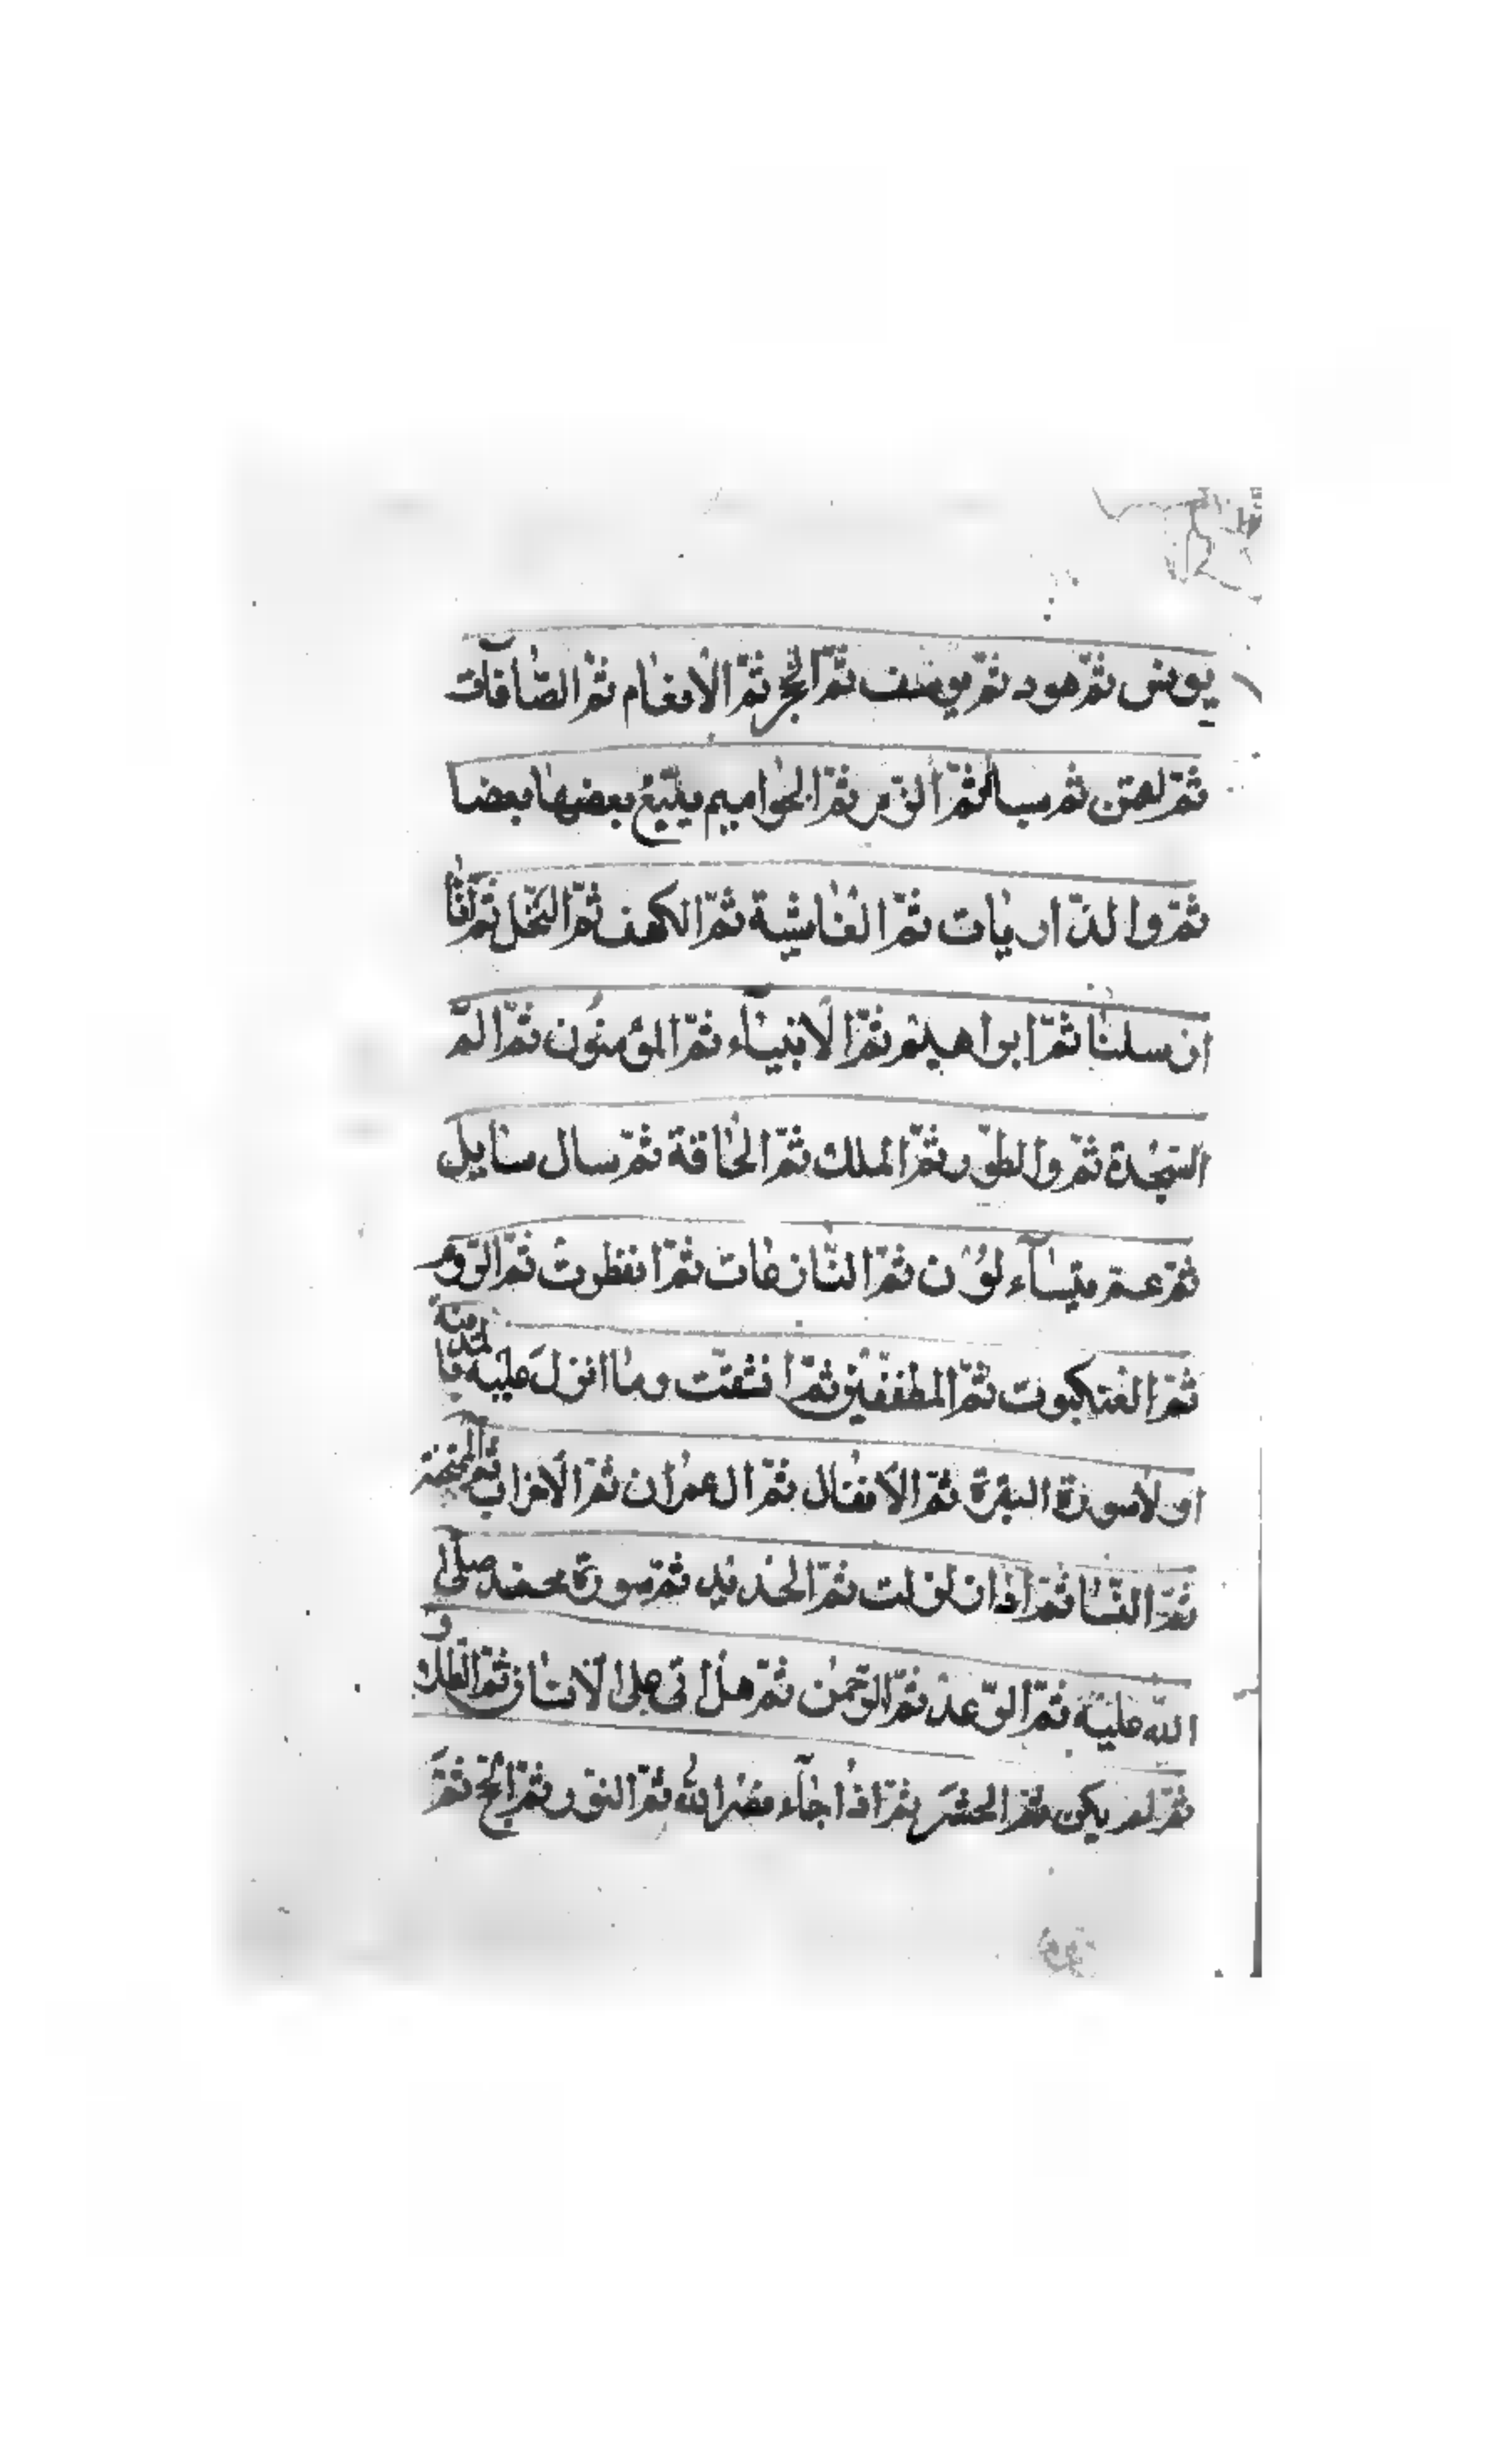 يونس ثمّ هود ثمّ يوسف ثمّ الحجر ثمّ الأنعام ثمّ الصّآفات
ثمّ لقمن ثم سبا ثمّ الزّمر ثمّ الحواميم يتّبع بعضها بعضا
ثمّ والذّاريات ثمّ الغاشية ثمّ الكهف ثمّ النّحل ثمّ انّا
ارسلنا ثمّ ابراهيم ثمّ الأنبيآء ثمّ المؤمنون ثمّ الم
السّجدة ثمّ والطّور ثمّ الملك ثمّ الحاقة ثمّ سال سايل
ثمّ عم يتسآءلون ثمّ النّازعات ثمّ انفطرت ثمّ الرّوم
ثمّ العنكبوت ثمّ المطففين ثمّ انشقت وما انزل عليه بالمدينة
اولا سورة البقرة ثمّ الأنفال ثمّ ال عمران ثمّ الأحزاب ثم الممتحنة
ثمّ النّسا ثمّ اذا زلزلت ثمّ الحديد ثمّ سورة محمد صلى
الله عليه و ثمّ الرّعد ثمّ الرّحمن ثمّ هل اتى على الأنسان ثمّ الطلاق
ثمّ لم يكن ثمّ الحشر ثمّ اذا جآء نصر الله ثمّ النّور ثمّ الحج ثمّ